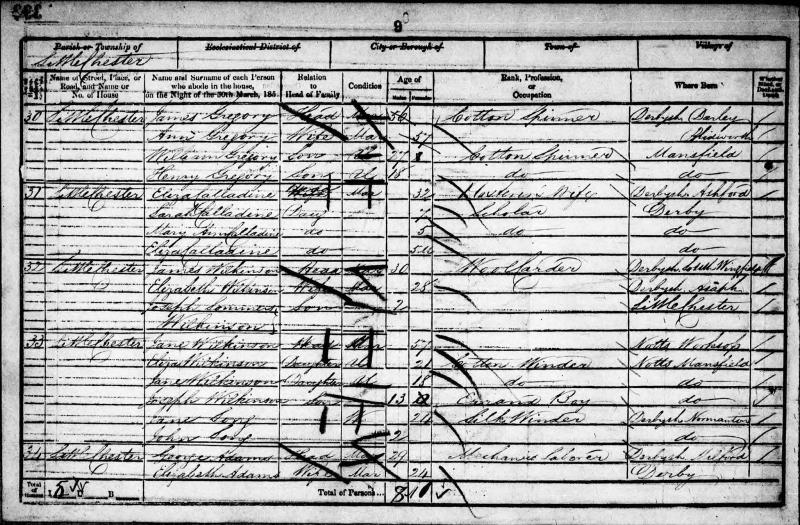 9
Parish or Township of Ecclesiastical District of City or Borough of Town of Village of
Little Chester
Name of Street, Place, or Road, and Name or No. of House Name and Surname of each Person who abode in the house, on the Night of the 30th March, 185 Relation to Head of Family Condition Age of Males Females Rank, Profession, or Occupation Where Born
30 Little Chester James Gregory Head Mar 56 Cotton Spinner Derbysh Darley
Ann Gregory Wife Mar 57
William Gregory Son 27 Cotton Spinner Mansfield
Henry Gregory Son Un 18 do do
31 Little Chester Eliza Falladine Wife Mar 32 Wife Derbysh Ashford
Sarah Falladine Daur 7 Scholar Derby
Mary Ann Falladine do 5 do do
Eliza Falladine do 5 M do
32 Little Chester James Wilkinson Head Mar 30 Wool Carder Derbysh
Elizabeth Wilkinson Wife Mar 28 Derbysh
Joseph Son 2 Little Chester
Wilkinson
33 Little Chester Jane Wilkinson Head 57 Notts Worksop
Eliza Wilkinson Daughter Un 21 Cotton Winder Notts Mansfield
Jane Wilkinson Daughter Un 18 do do
Joseph Wilkinson Son 13 Errand Boy do
Jane Silk Winder Derbysh Normanton
John 2 do
34 Little Chester George Adams Head Mar 29 Mechanic Laborer Derbysh Milford
Elizabeth Adams Wife Mar 24 Derby
Total of I 5 U B Total of Persons... 8 10